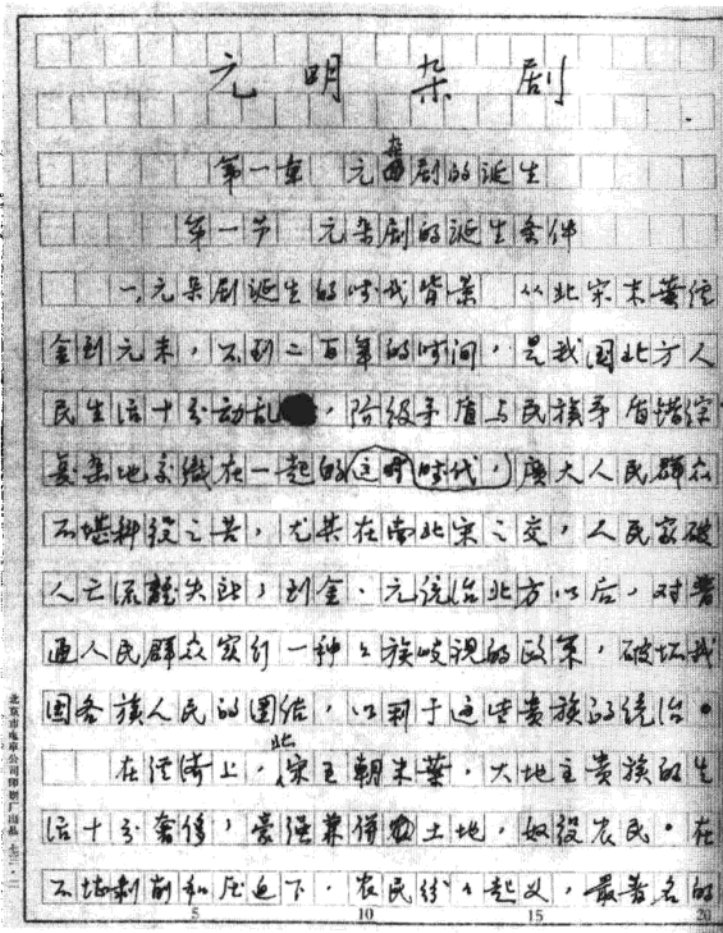 元明杂剧
第一章 元杂剧的诞生
第一节 元杂剧的诞生条件
一、元杂剧诞生的时代背景 从北宋末葉经
金到元末，不到二百年的时间，是我国北方人
民生活十分动乱，阶级矛盾与民族矛盾错综
复杂地交織在一起的时代，廣大人民群众
不堪科役之苦，尤其在南北宋之交，人民家破
人亡流離失所，到金、元统治北方以后，对普
通人民群众实行一种民族歧视的政策，破坏我
国各族人民的團结，以利于这些贵族的统治。
在经济上，北宋王朝末葉，大地主贵族的生
活十分奢侈，豪强兼併土地，奴役农民。在
不堪剥削和压迫下，农民纷纷起义，最著名的
5 10 15 20
北京市电车公司印刷厂出品 七三·二